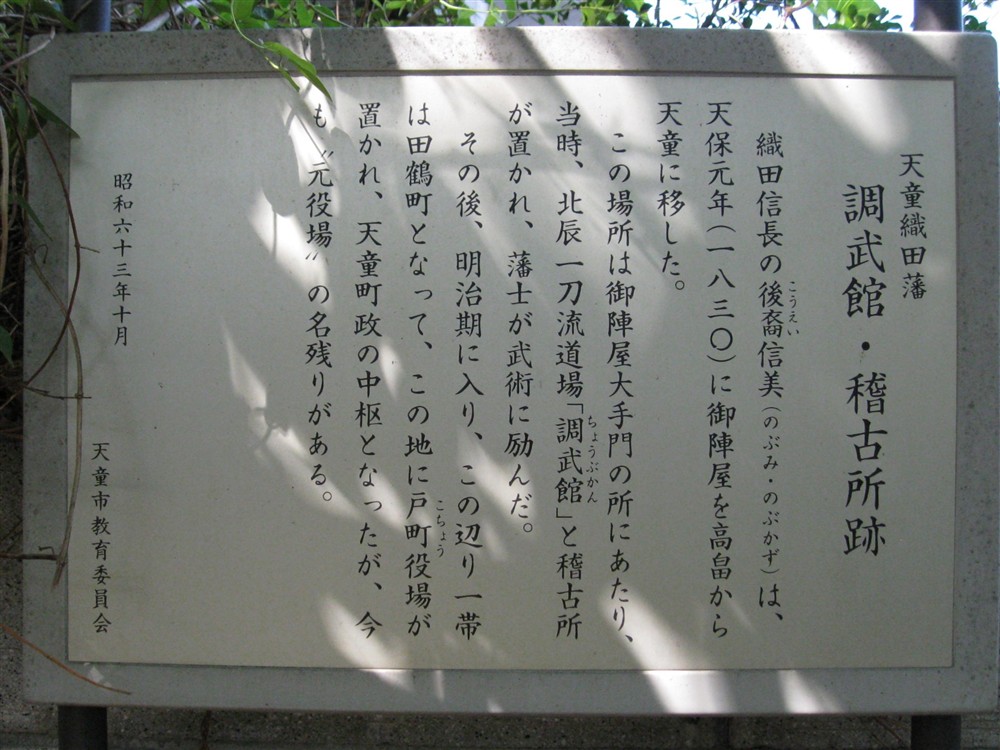 天童織田藩
調武館・稽古所跡
織田信長の後裔信美(のぶみ・のぶかず)は、
こうえい
天保元年(一八三〇)に御陣屋を高畠から
天童に移した。
この場所は御陣屋大手門の所にあたり、
当時、北辰一刀流道場「調武館」と稽古所
ちょうぶかん
が置かれ、藩士が武術に励んだ。
その後、明治期に入り、この辺り一帯
は田鶴町となって、この地に戸町役場が
こちょう
置かれ、天童町政の中枢となったが、今
も〝元役場〟の名残りがある。
昭和六十三年十月
天童市教育委員会